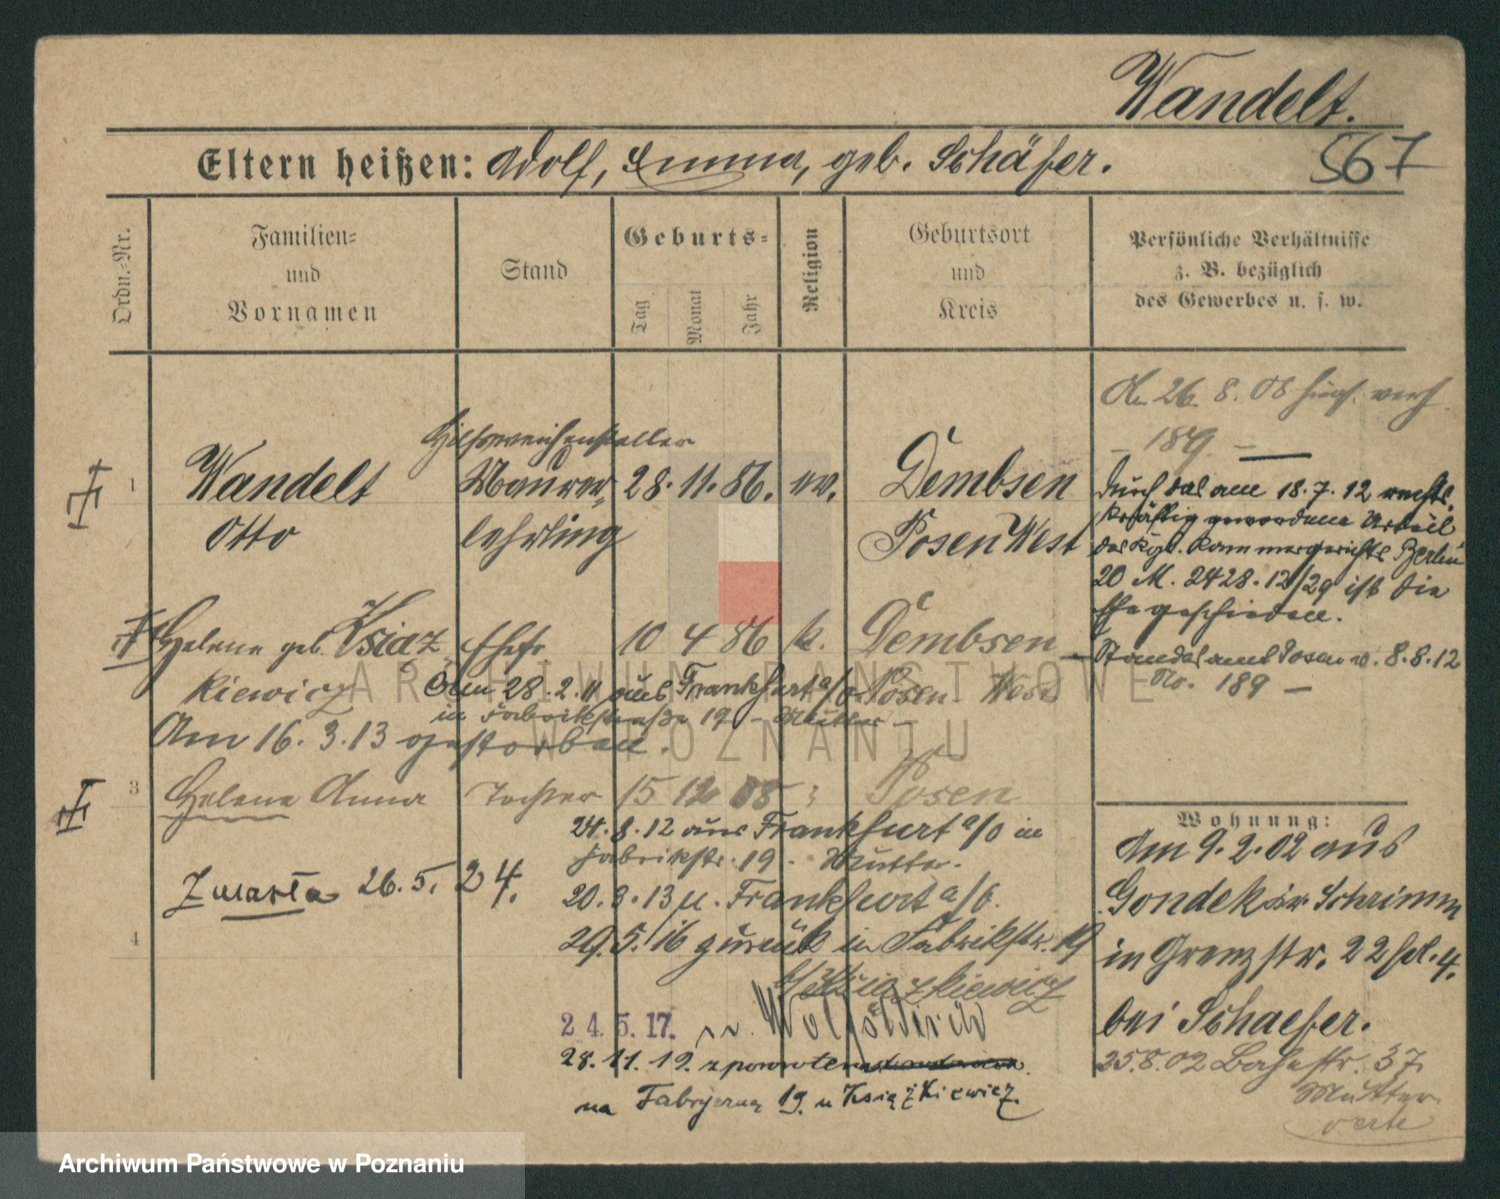 Wandelt.
567
Eltern heißen: Adolf, Emma, geb. Schäfer.
Ordn.-Nr.
Familien-
und
Vornamen
Stand
Geburts-
Tag
Monat
Jahr
Religion
Geburtsort
und
Kreis
Persönliche Verhältnisse
z. B. bezüglich
des Gewerbes u. s. w.
1
Wandelt
Otto
Hilfsweichensteller
Maurer-
lehrling
28. 11. 86. ev.
Dembsen
Posen West
26. 8. 08
189.
Durch das am 18. 7. 12 rechts-
kräftig gewordene Urteil
des Kgl. Kammergerichts Berlin
20 M. 2428. 12/29 ist die
Ehe geschieden.
Standesamt Posen W. 8.8.12
No. 189 —
Helene geb. Ksiaz
kiewicz
Ehefr
10 4 86 k.
Dembsen
Posen West
Am 28. 2. 11 aus Frankfurt a/o
in Fabrikstraße 19 - Mutter -
Am 16. 3. 13 gestorben.
3
Helene Anna
Tochter 15 12 08
Posen
24. 8. 12 aus Frankfurt a/O in
Fabrikstr. 19. Mutter.
Zmarła 26. 5. 24.
20. 3. 13 n. Frankfurt a/O.
4
29. 5. 16 zurück in Fabrikstr. 19
Ksiazkiewicz
24. 5. 17. n.
28. 11. 19. z powrotem
na Fabryczną 19 u Książkiewicz.
Wohnung:
Am 9. 2. 02 aus
Gondek Kr Schrimm
in Grenzstr. 22
bei Schaefer.
25.8.02 37
Mutter
verte
ARCHIWUM PAŃSTWOWE
W POZNANIU
Archiwum Państwowe w Poznaniu